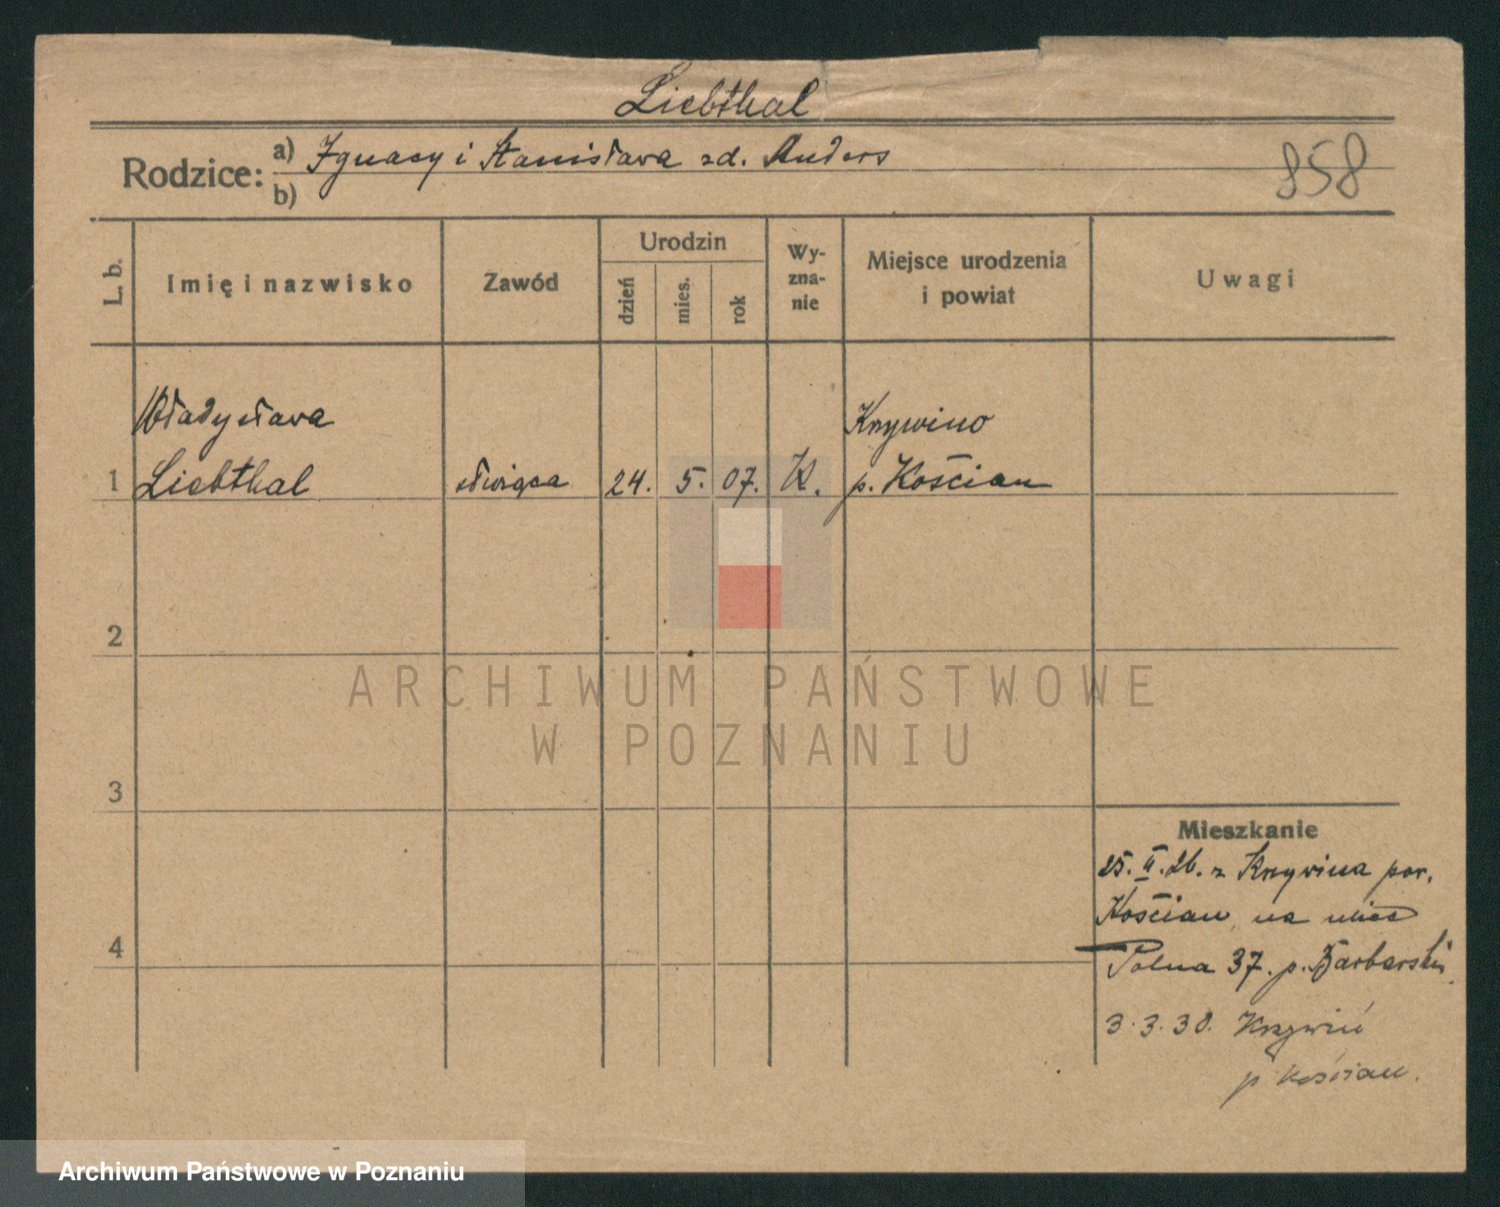 Liebthal
Rodzice: a) Ignacy i Stanisława zd. Anders
b)
858
L. b.
Imię i nazwisko
Zawód
Urodzin
dzień
mies.
rok
Wy-
zna-
nie
Miejsce urodzenia
i powiat
Uwagi
Władysława
Krzywino
1 Liebthal służąca 24. 5. 07. K. p. Kościan
2
3
4
ARCHIWUM PAŃSTWOWE
W POZNANIU
Mieszkanie
25. II. 26. z Krzywina pow.
Kościan, na
Polna 37. p. Barbarski
3.3.30. Krzywiń
p Kościan.
Archiwum Państwowe w Poznaniu